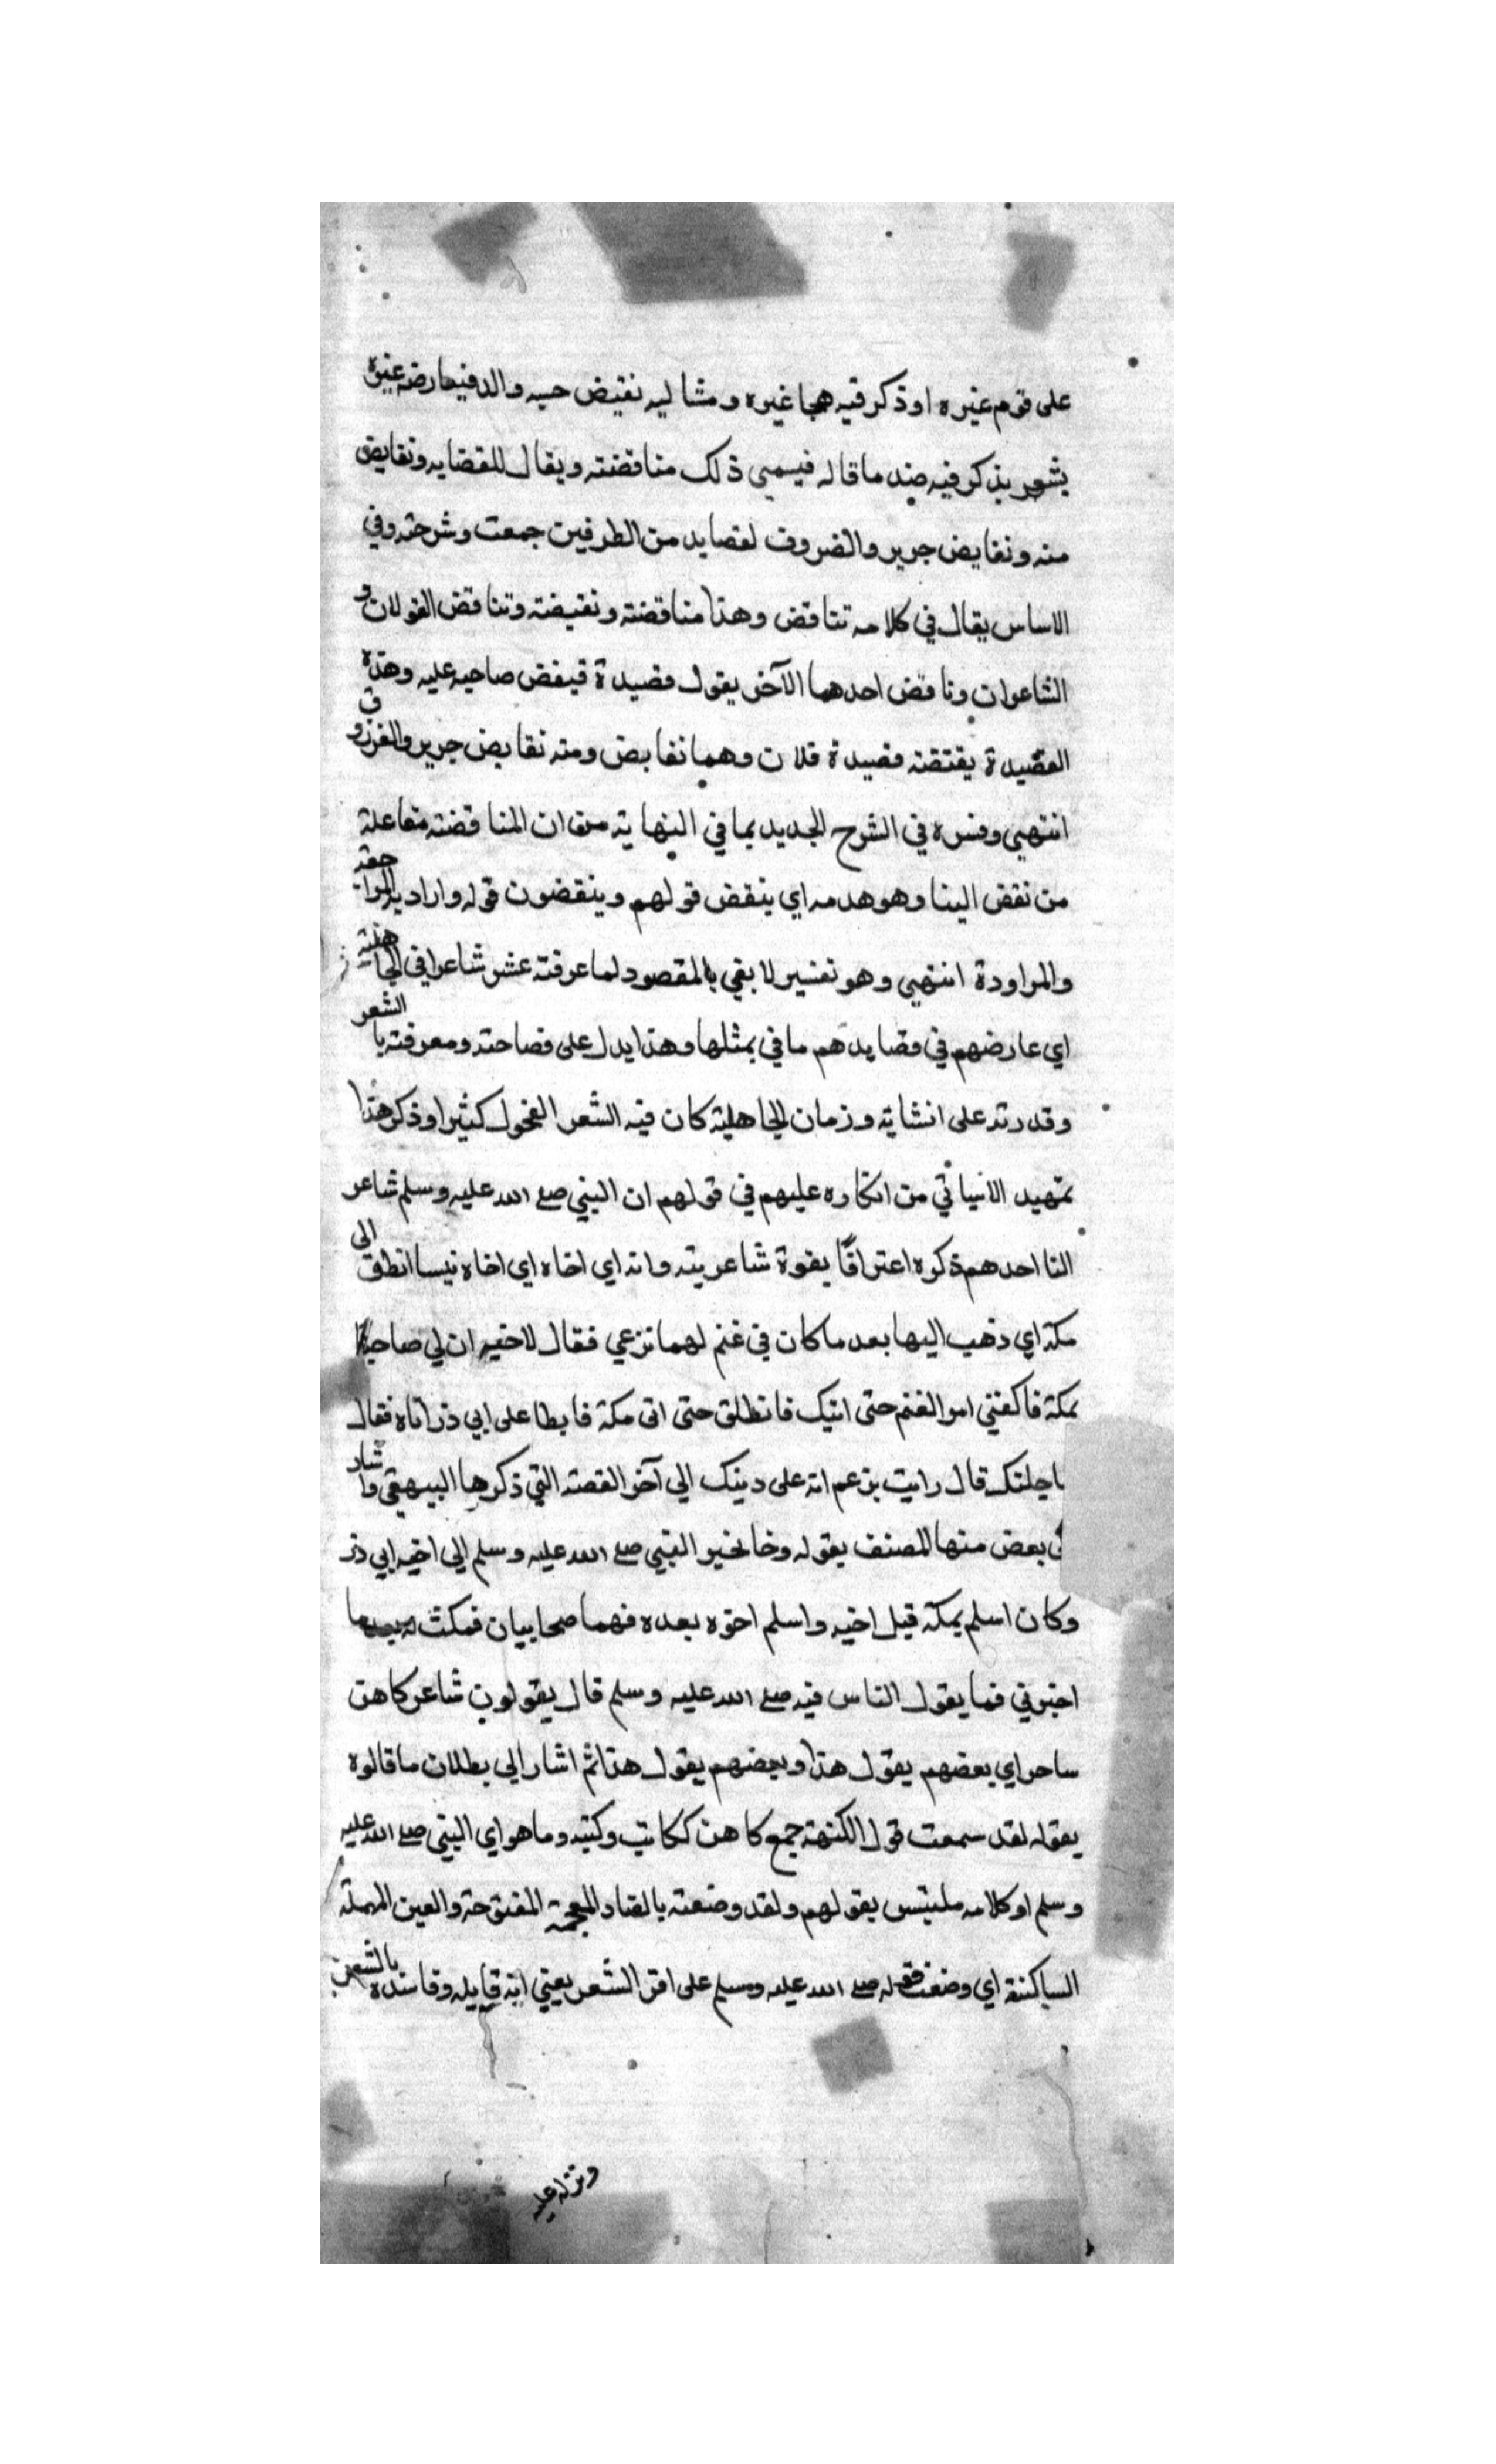 على قوم غيره او ذكر فيه هجا غيره ومثاليه نقيض حسبه والد فيعارضه غيره
بشعر يذكر فيه ضد ما قاله فيسمى ذلك مناقضته ويقال للقضايه ونقايض
منه ونقايض جرير والضروف لقصايد من الطرفين جمعت وشرحته وفي
الاساس يقال في كلامه تناقض وهذا مناقضته ونقيضته وتناقض القولان و
الشاعران وناقض احدهما الآخر يقول قصيدة فينقض صاحبه عليه وهذه
القصيدة نقيضة قصيدة فلان وهما نقايض ومنه نقايض جرير والفرزدق
انتهى وفسره في الشرح الجديد بما في النهاية من ان المناقضته مفاعلة
من نقض البنا وهو هدمه اي ينقض قولهم وينقضون قوله واراد به المراجعة
والمراودة انتهى وهو تفسير لا يفي بالمقصود لما عرفته عشر شاعرا في الجاهلية
اي عارضهم في قصايدهم ما في بمثلها وهذا يدل على فصاحته ومعرفته بالشعر
وقدرته على انشايه وزمان الجاهلية كان فيه الشعر الفحول كثيرا وذكر هذا
تمهيد الانياتي من انكاره عليهم في قولهم ان النبي صلى الله عليه وسلم شاعر
انا احدهم ذكره اعترافا بقوة شاعريته وانه اي اخاه اي اخاه نيسا انطلق الى
مكة اي ذهب اليها بعد ما كان في غنم لهما ترعي فقال لاخيه ان لي صاحبا
بمكة فاكفني امر الغنم حتى اتيك فانطلق حتى اتى مكة فابطا على ابي ذر اتاه فقال
ما جلتك قال رايت بزعم انه على دينك الي آخر القصته التي ذكرها البيهقي واشار
الى بعض منها المصنف بقوله وجا بخبر النبي صلى الله عليه وسلم الى اخيه ابي ذر
وكان اسلم بمكة قبل اخيه واسلم اخوه بعده فهما صحابيان فمكث
اخبرني فما يقول الناس فيه صلى الله عليه وسلم قال يقولون شاعر كاهن
ساحر اي بعضهم يقول هذا وبعضهم يقول هذا ثم اشار الى بطلان ما قالوه
بقوله لقد سمعت قول الكهنة جمع كاهن ككاتب وكتبه وما هو اي النبي صلى الله عليه
وسلم او كلامه ملتبس بقولهم ولقد وضعته بالضاد المعجمة المفتوحة والعين المهملة
الساكنة اي وضعت قوله صلى الله عليه وسلم على اقر الشعر يعني انه قايله وقاسنده بالشعر
ونزله عليه